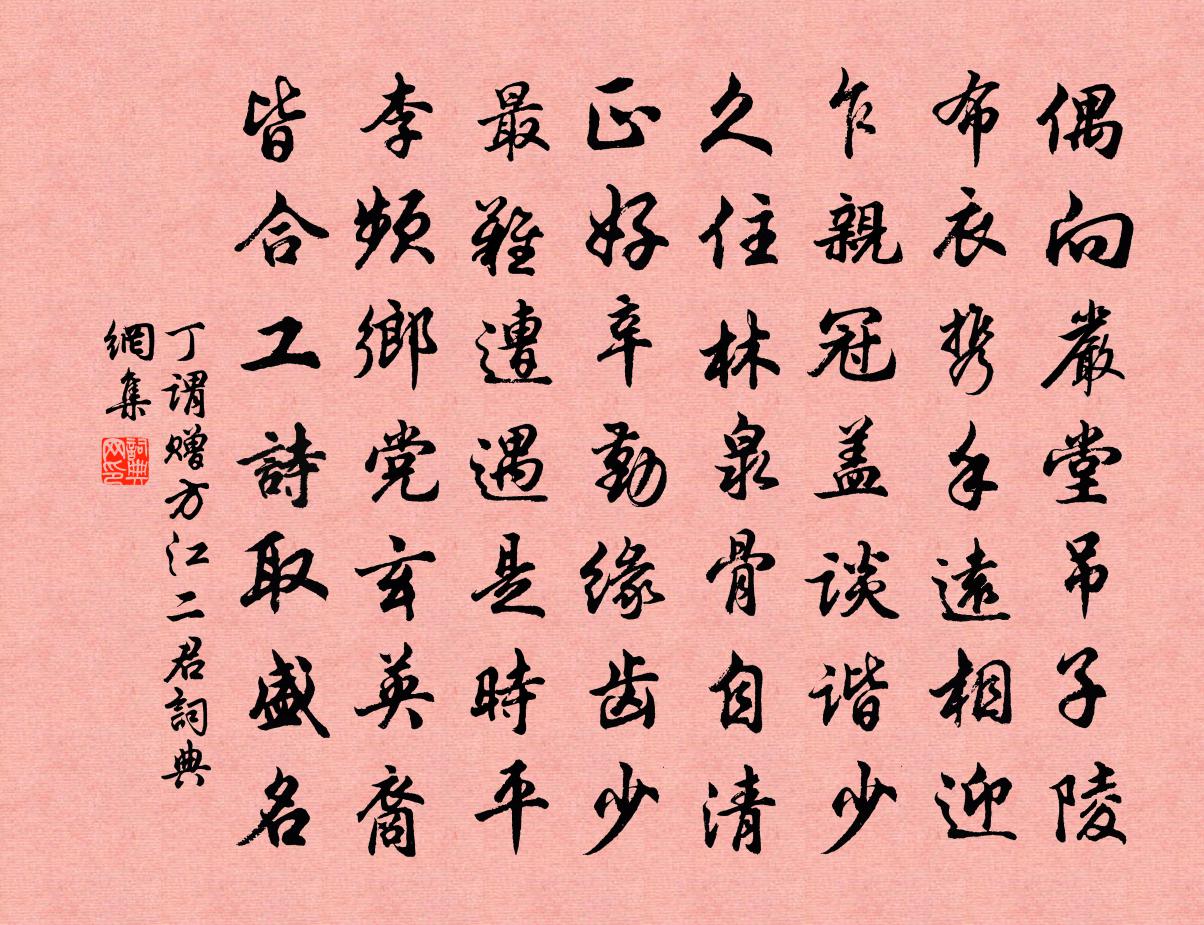 偶向嚴堂吊子陵
布衣携手遠相迎
乍親冠盖談谐少
久住林泉骨自清
正好辛勤緣齿少
最難遭遇是時平
李频鄉党玄英裔
皆合工詩取盛名
丁謂贈方江二君詞典
網集
詞典網印